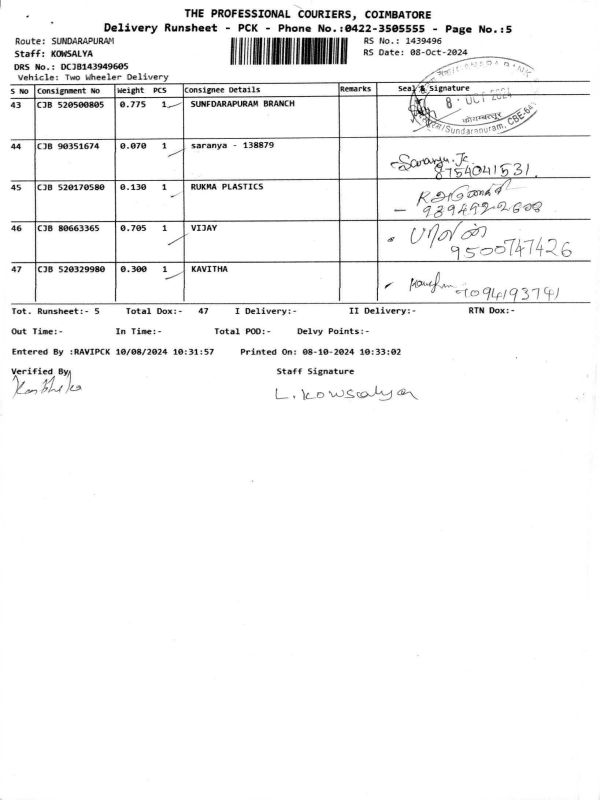 THE PROFESSIONAL COURIERS, COIMBATORE
Delivery Runsheet - PCK - Phone No.:0422-3505555 - Page No.:5
Route: SUNDARAPURAM RS No.: 1439496
Staff: KOWSALYA RS Date: 08-Oct-2024
DRS No.: DCJB143949605
Vehicle: Two Wheeler Delivery
S No Consignment No Weight PCS Consignee Details Remarks Seal & Signature
43 CJB 520500805 0.775 1 SUNFDARAPURAM BRANCH
CANARA BANK
8 OCT 2024
कोयम्बत्तूर
Sundarapuram, CBE-641
44 CJB 90351674 0.070 1 saranya - 138879 Saranya.Jc
8754041531.
45 CJB 520170580 0.130 1 RUKMA PLASTICS
46 CJB 80663365 0.705 1 VIJAY
9500747426
47 CJB 520329980 0.300 1 KAVITHA 9094193741
Tot. Runsheet:- 5 Total Dox:- 47 I Delivery:- II Delivery:- RTN Dox:-
Out Time:- In Time:- Total POD:- Delvy Points:-
Entered By :RAVIPCK 10/08/2024 10:31:57 Printed On: 08-10-2024 10:33:02
Verified By Staff Signature
L. Kowsalya